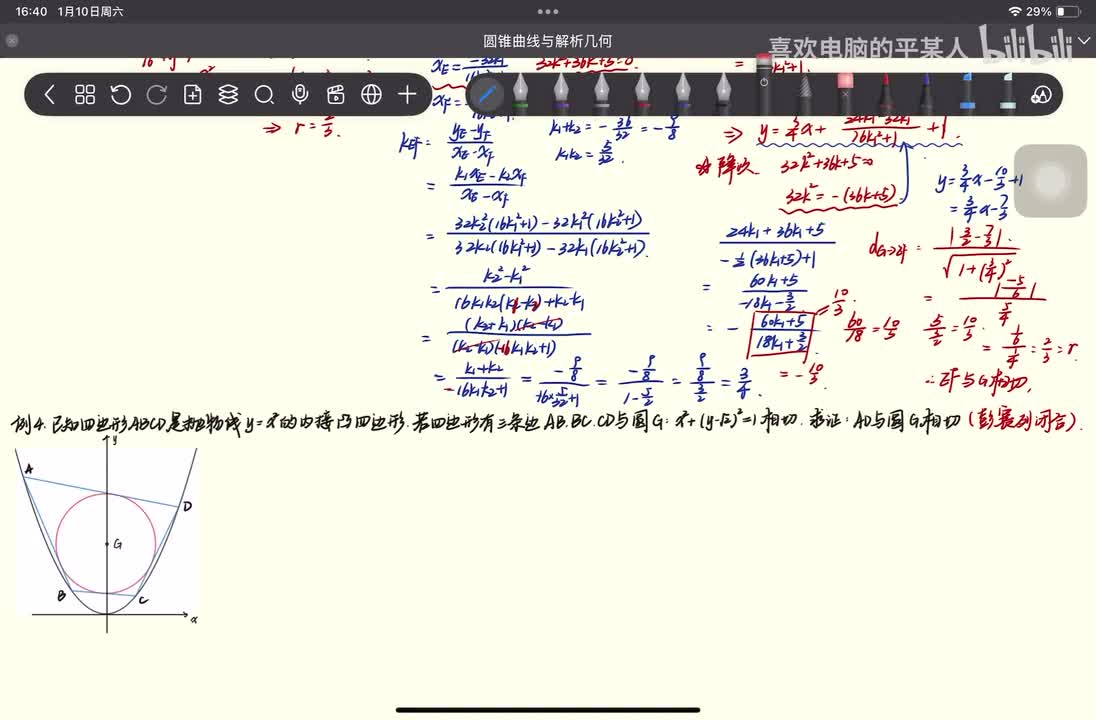 16:40 1月10日周六
29%
圆锥曲线与解析几何
喜欢电脑的平某人 bilibili
⇒ r = 2/3.
k_EF = (y_E - y_F)/(x_E - x_F)
= (k₁x_E - k₂x_F)/(x_E - x_F)
= (32k₂²(16k₁²+1) - 32k₁²(16k₂²+1))/(32k₂(16k₁²+1) - 32k₁(16k₂²+1)).
= (k₂² - k₁²)/(16k₁k₂(k₁-k₂)+k₂-k₁)
= (k₂+k₁)(k₂-k₁)/(k₂-k₁)(-16k₁k₂+1)
= (k₁+k₂)/(-16k₁k₂+1) = = (-9/8)/(1-5/2) = (9/8)/(3/2) = 3/4
k₁+k₂ = -36/32 = -9/8
k₁k₂ = 5/32.
32k²+36k+5=0
⇒ y = 3/4 x + (24k₁-32k₁)/(16k₁²+1) + 1.
降次 32k²+36k+5=0
32k² = -(36k+5).
(24k₁+36k₁+5)/(-1/2(36k₁+5)+1)
= (60k₁+5)/(-18k₁-3/2)
= - (60k₁+5)/(18k₁+3/2) = 10/3. 60/18 = 10/3 5/(3/2) = 10/3.
= -10/3.
y = 3/4 x - 10/3 + 1
= 3/4 x - 7/3
d_G→EF = |3/2 - 7/3|/√(1+(3/4)²)
= |-5/6|/(5/4)
= (1/6)/(1/4) = 2/3 = r
∴ EF与G相切.
例4.已知四边形ABCD是抛物线y=x²的内接凸四边形.若四边形有三条边AB.BC.CD与圆G: x²+(y-√2)²=1相切. 求证: AD与圆G相切 (彭赛列闭合).
y
A
D
G
B
C
x